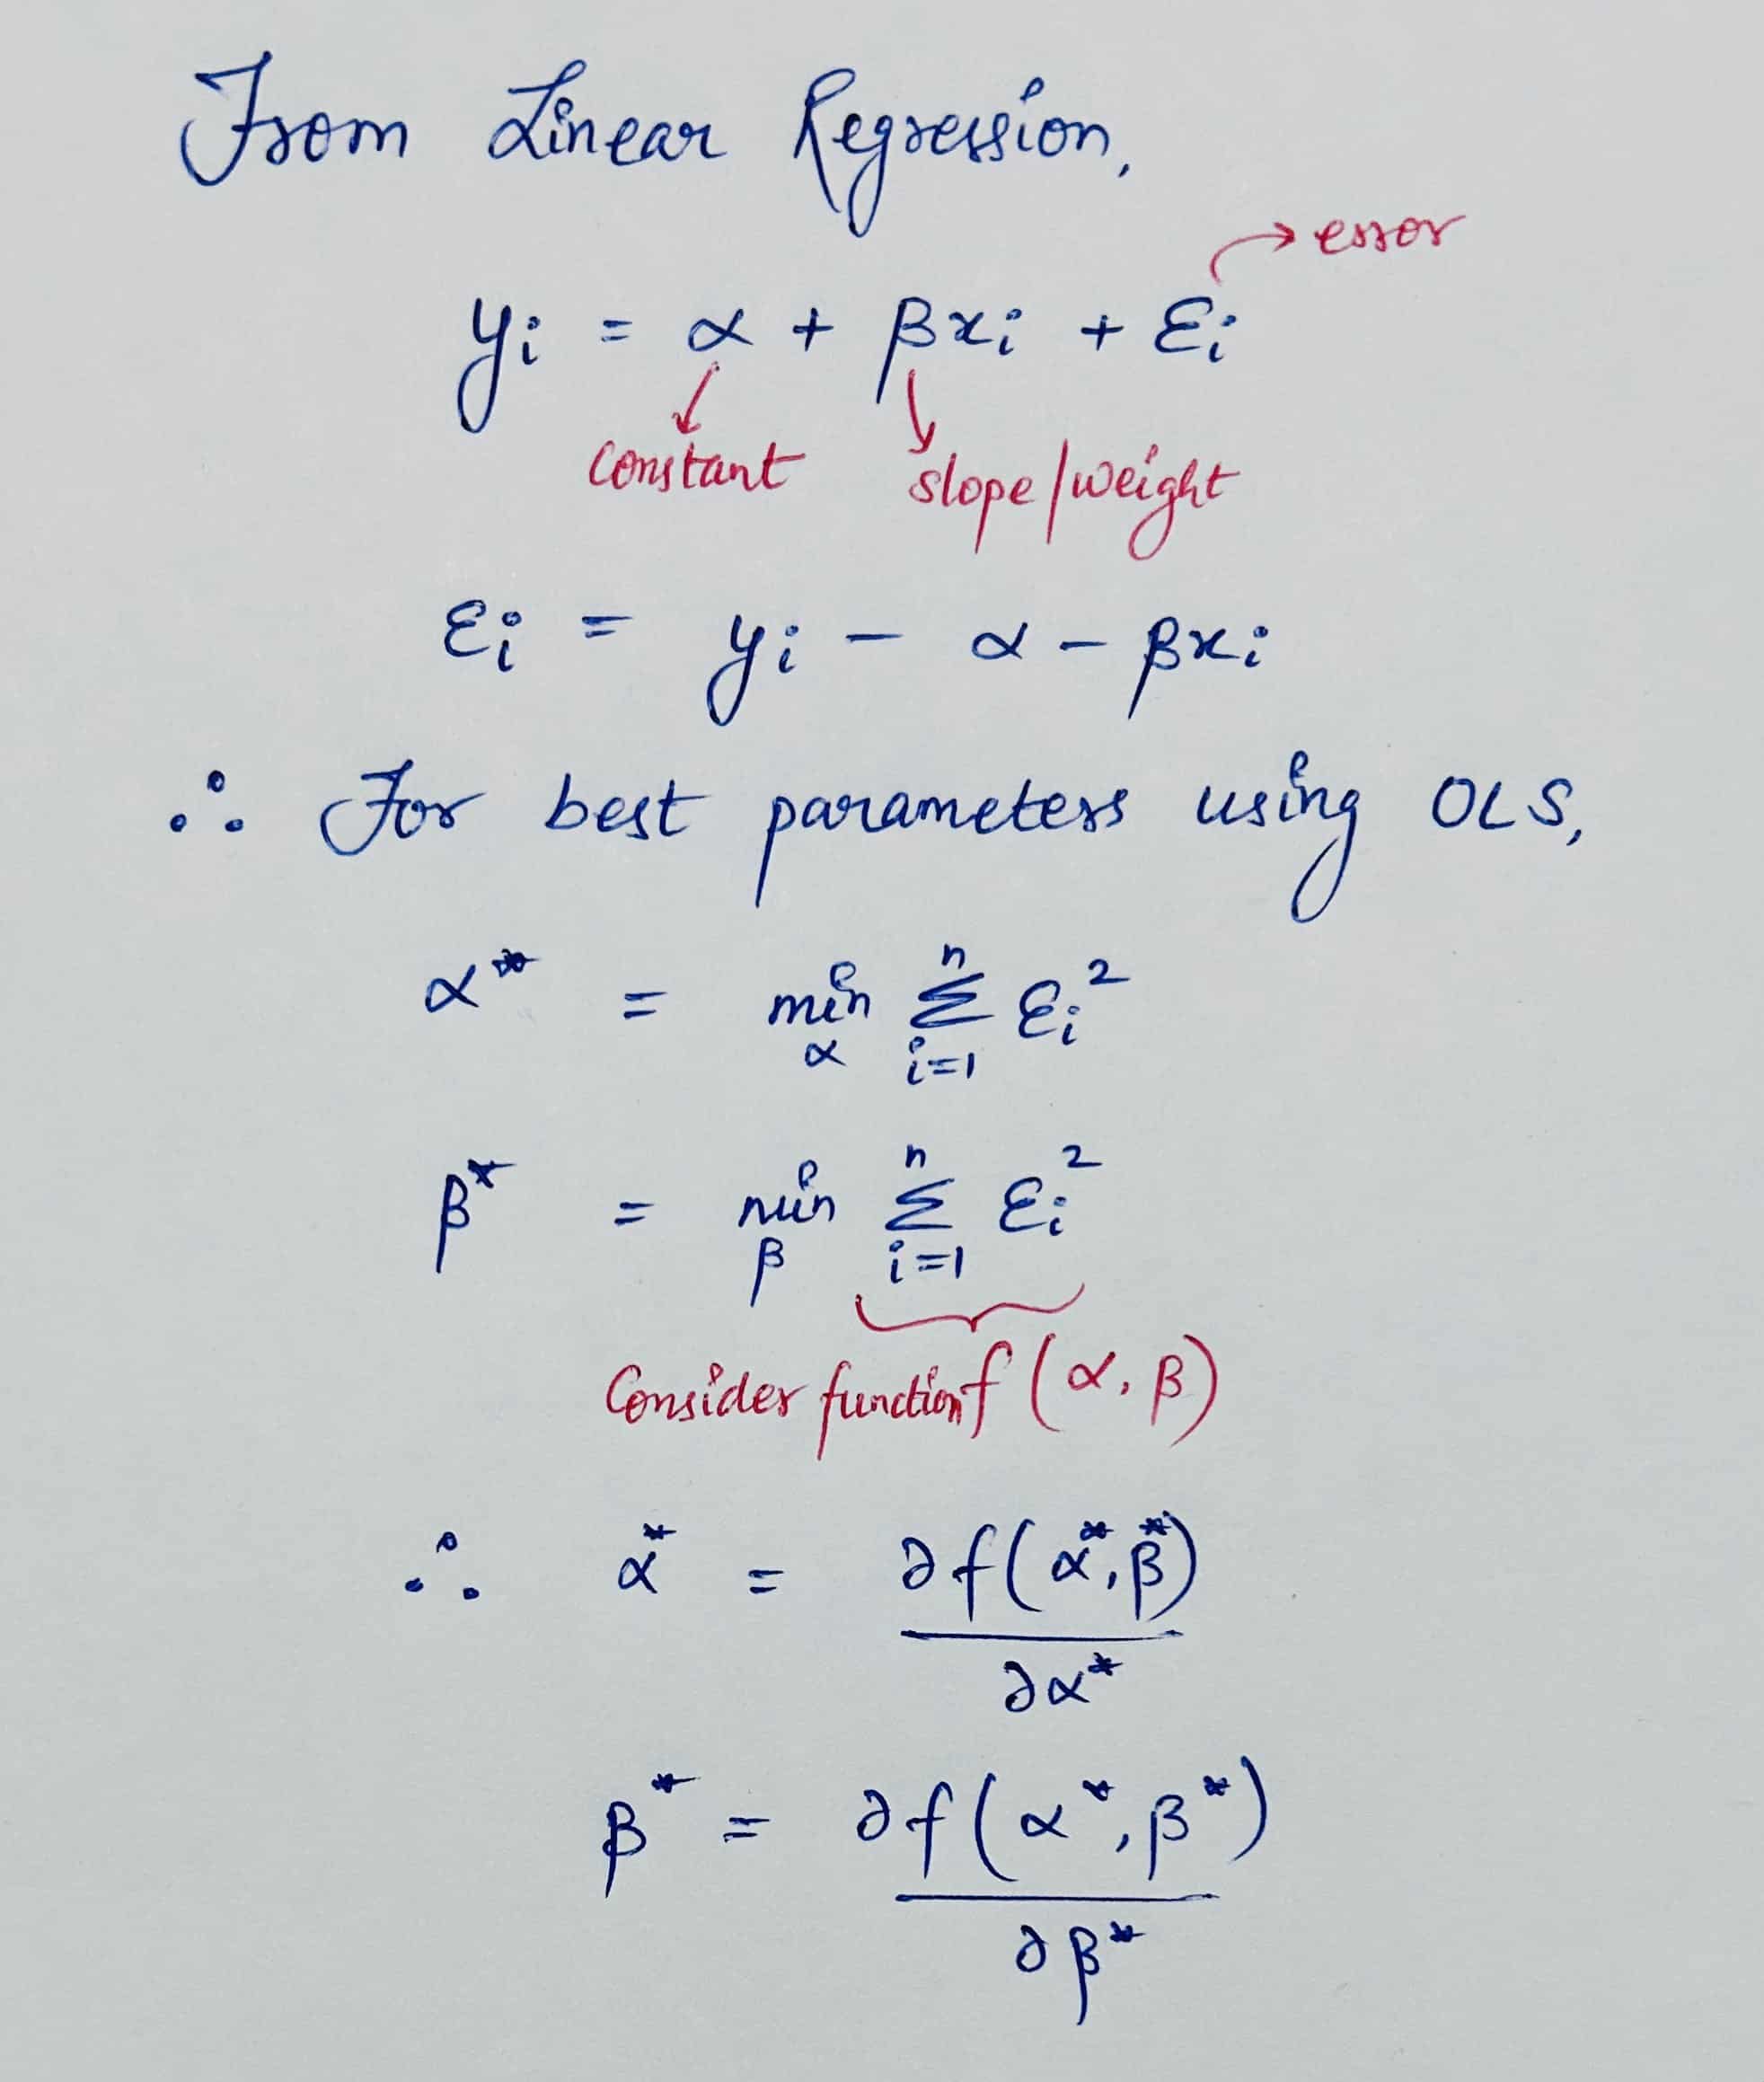 From Linear Regression,
→ error
yi = α + βxi + εi
constant slope/weight
εi = yi - α - βxi
∴ For best parameters using OLS,
α* = min_α Σ_{i=1}^{n} εi²
β* = min_β Σ_{i=1}^{n} εi²
Consider function f(α, β)
∴ α* = ∂f(α*, β*)
∂α*
β* = ∂f(α*, β*)
∂β*